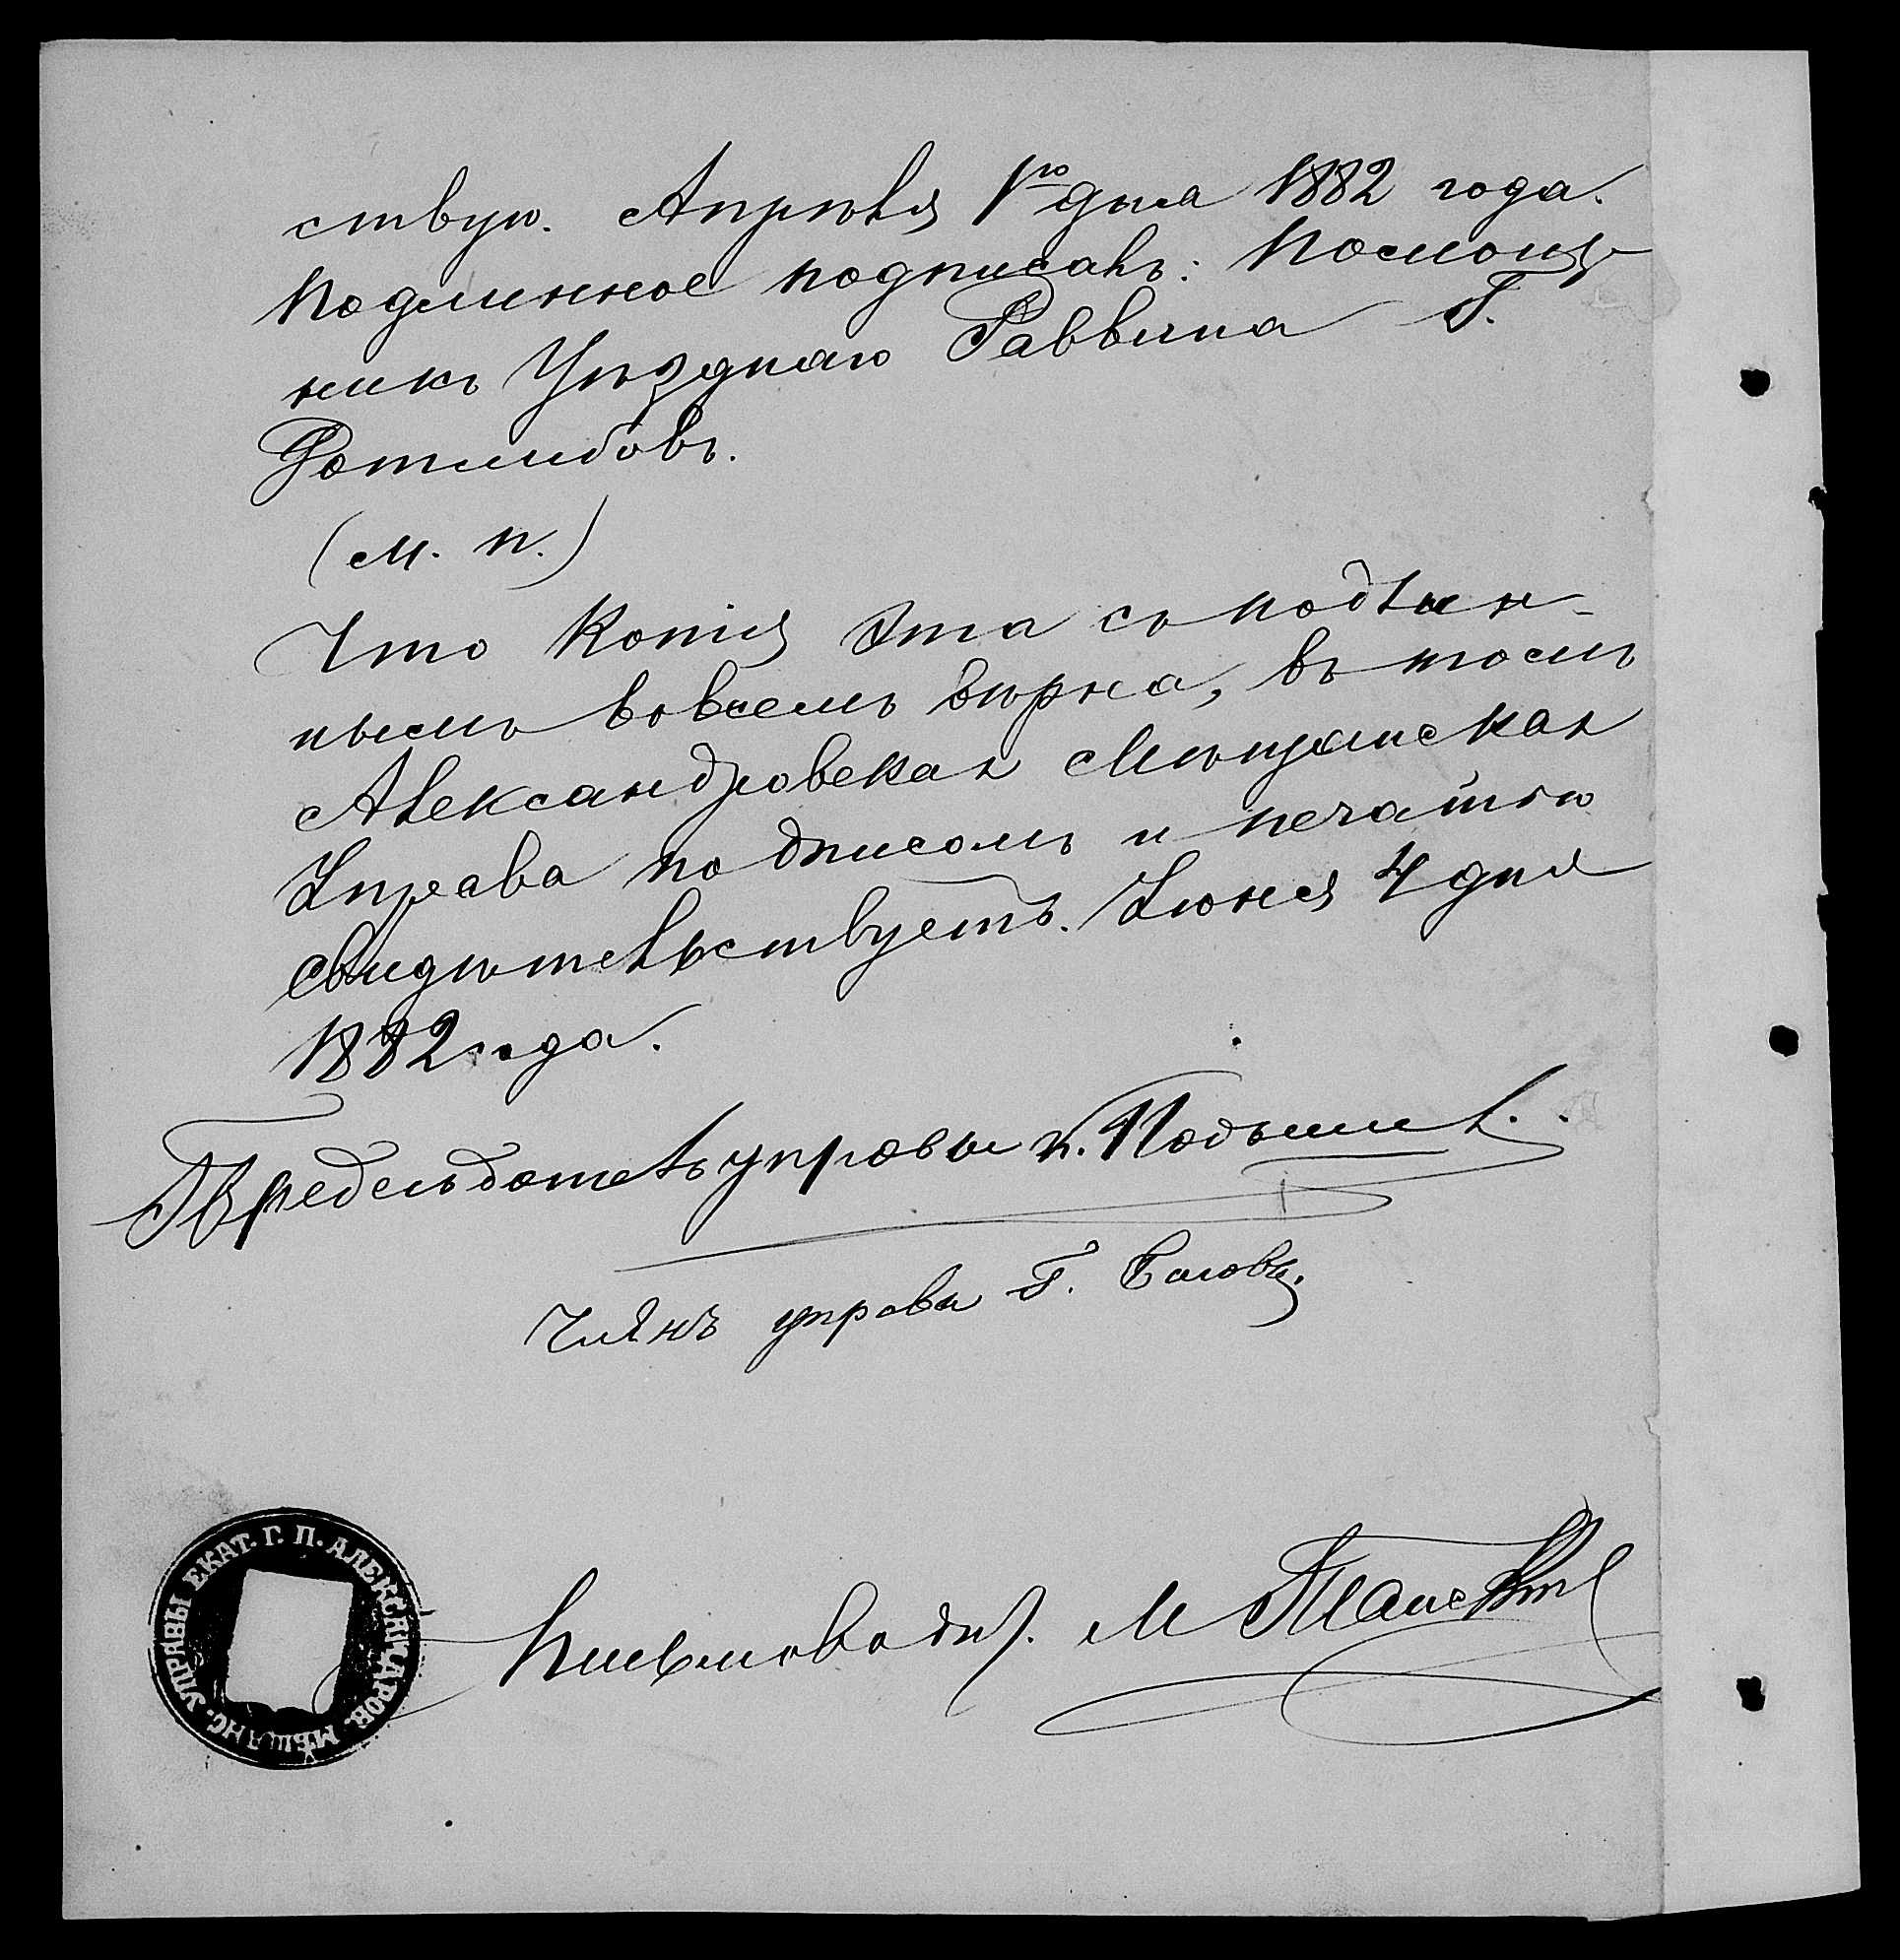 ствую. Апрѣля 1го дня 1882 года.
Подлинное подписалъ: Помощ
никъ Уѣзднаго Раввина Г.
Готлибовъ.
(М. П.)
Что Копія эта съ подлин-
нымъ вовсемъ вѣрна, въ томъ
Александровская Мѣщанская
Управа подписомъ и печатью
свидѣтельствуетъ. Іюня 4 дня
1882 года.
Предсѣдатель управы
Члѣнъ управы Г.
Письмоводит. М
МѢЩАНС. УПРАВЫ ЕКАТ. Г. П. АЛЕКСАНДРОВ.